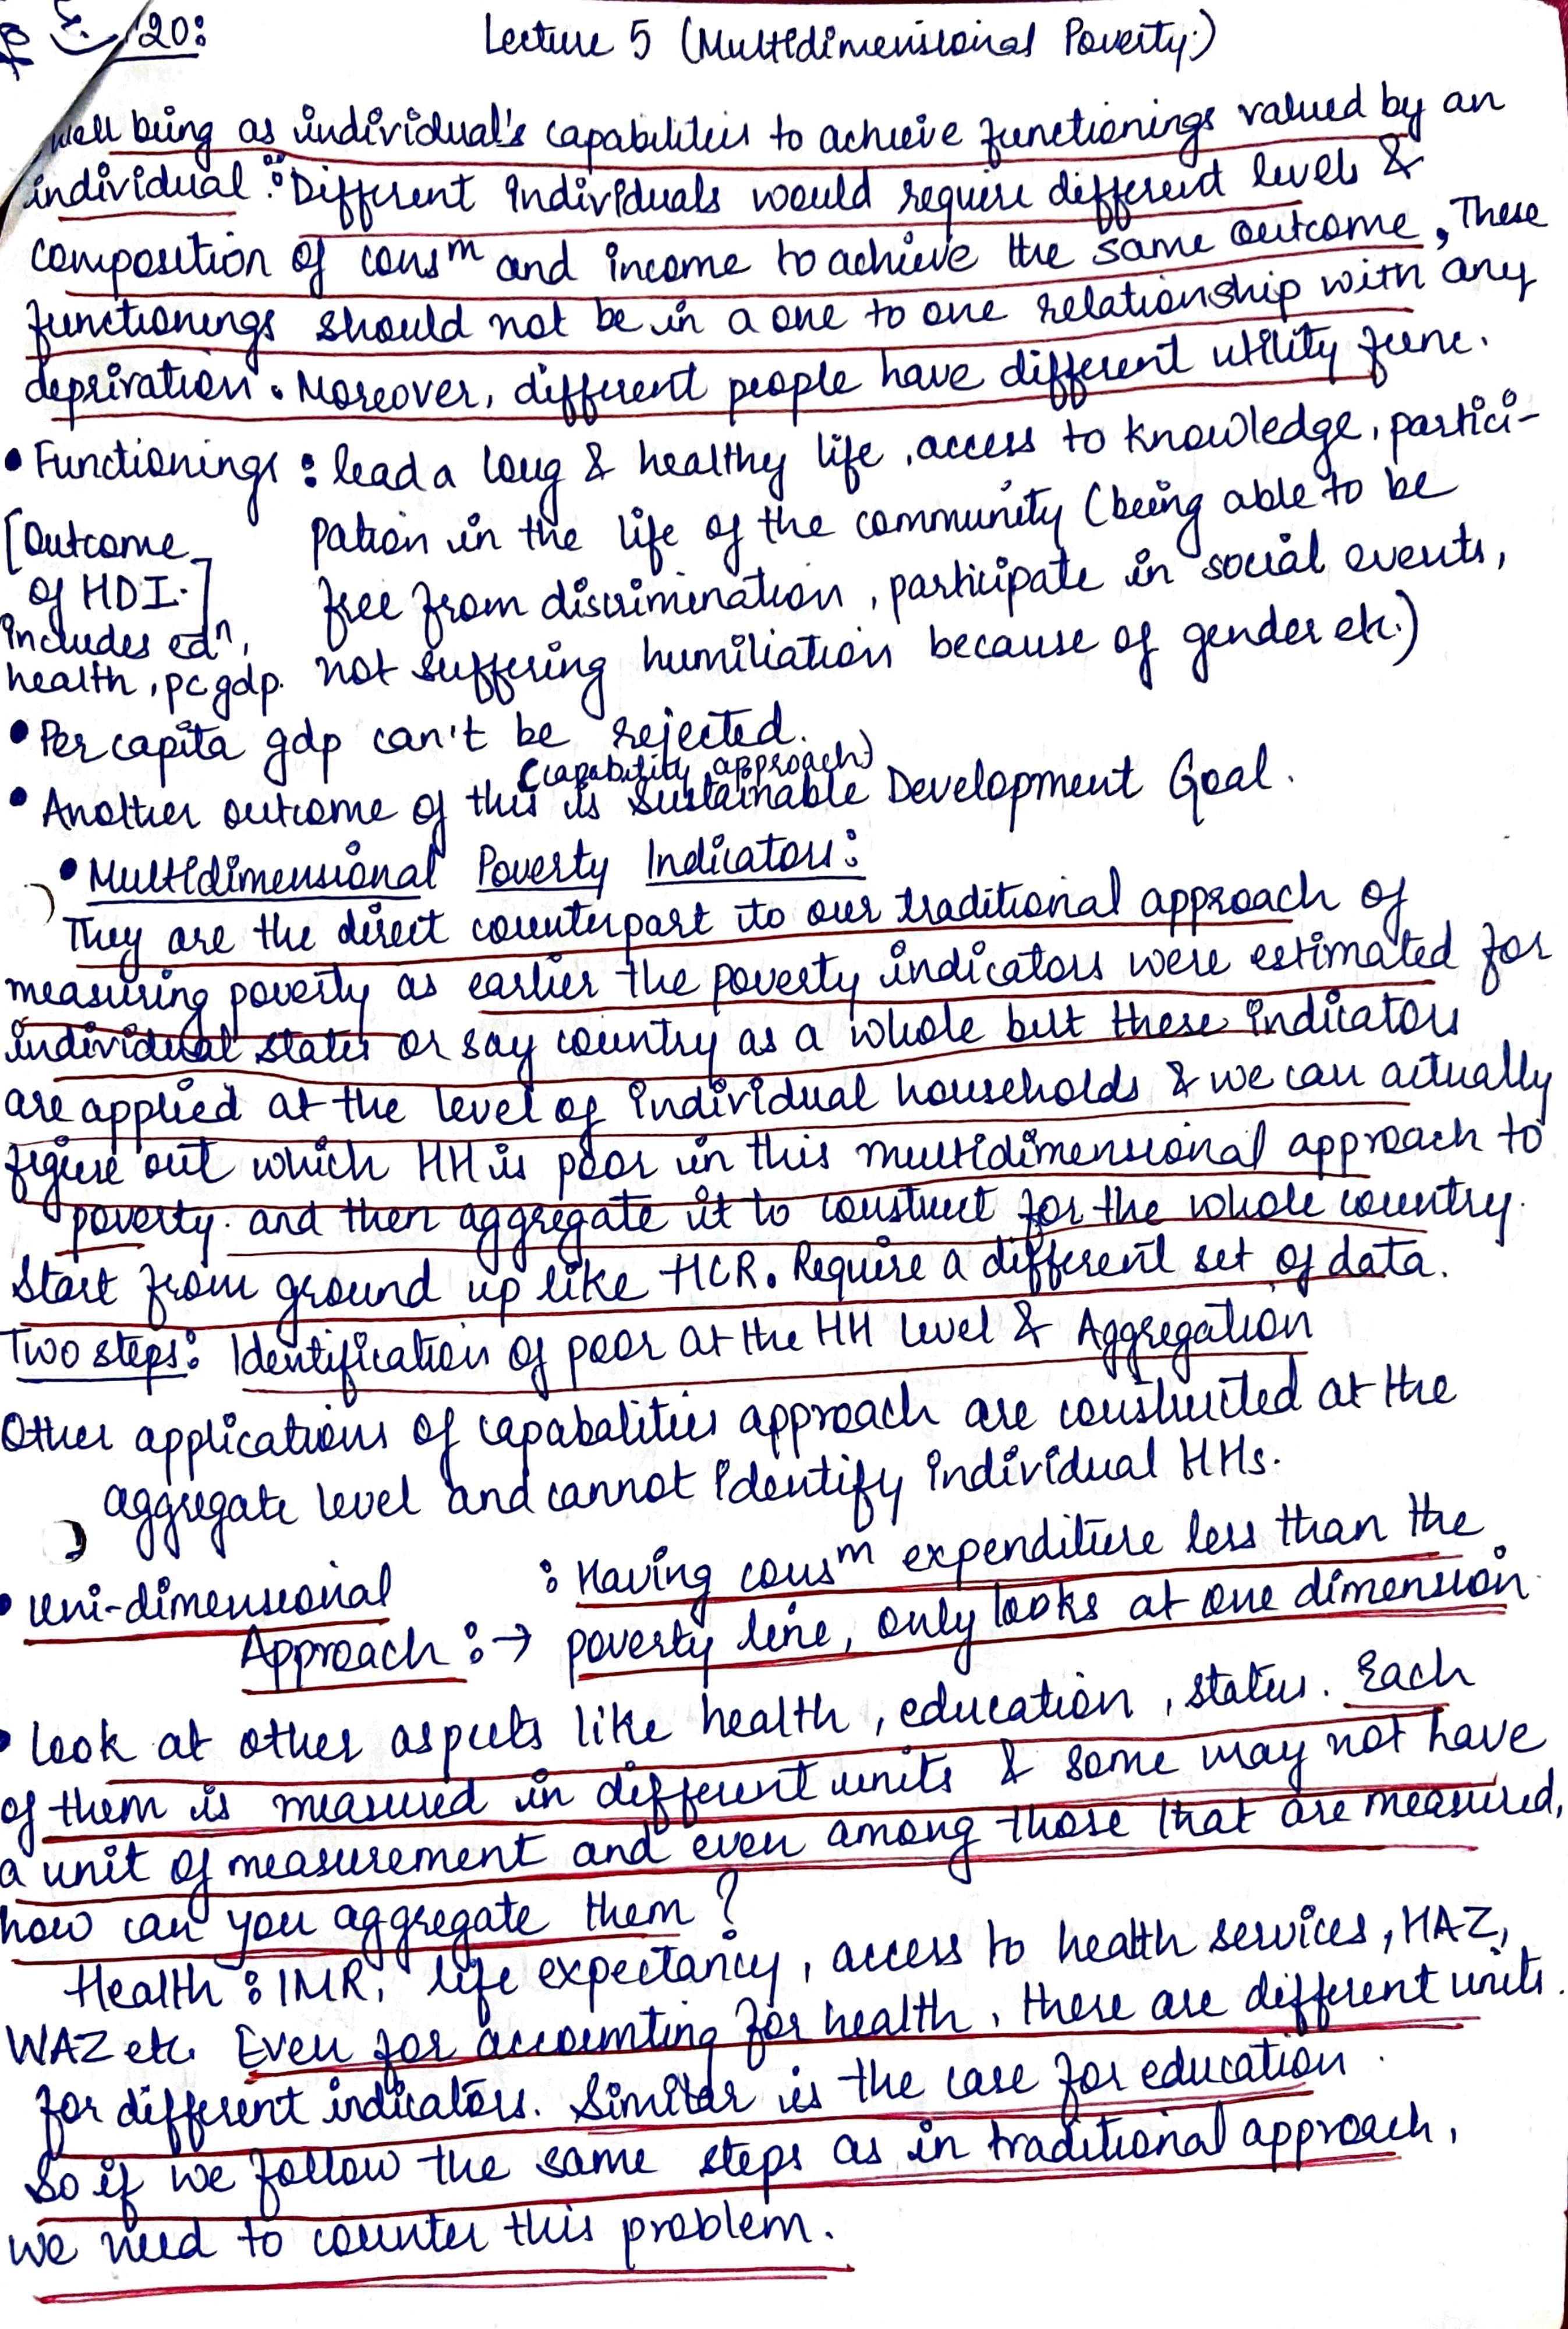 20:
Lecture 5 (Multidimensional Poverty.)
well being as individual's capabilities to achieve functionings valued by an
individual. Different individuals would require different levels &
composition of consm and income to achieve the same outcome, These
functionings should not be in a one to one relationship with any
deprivation. Moreover, different people have different utility func.
• Functionings: lead a long & healthy life, access to knowledge, partici-
[Outcome pation in the life of the community (being able to be
of HDI.] free from discrimination, participate in social events,
includes edn, not suffering humiliation because of gender etc.)
health, pc gdp.
• Per capita gdp can't be rejected.
(capability approach)
• Another outcome of this is Sustainable Development Goal.
• Multidimensional Poverty Indicators:
They are the direct counterpart to our traditional approach of
measuring poverty as earlier the poverty indicators were estimated for
individual states or say country as a whole but these indicators
are applied at the level of individual households & we can actually
figure out which HH is poor in this multidimensional approach to
poverty. and then aggregate it to construct for the whole country.
Start from ground up like HCR. Require a different set of data.
Two steps: Identification of poor at the HH level & Aggregation
Other applications of capabalities approach are constructed at the
aggregate level and cannot identify individual HHs.
• Uni-dimensional : Having consm expenditure less than the
Approach :→ poverty line, only looks at one dimension.
• Look at other aspects like health, education, status. Each
of them is measured in different units & some may not have
a unit of measurement and even among those that are measured,
how can you aggregate them?
Health: IMR, life expectancy, access to health services, HAZ,
WAZ etc. Even for accounting for health, there are different units.
for different indicators. Similar is the case for education.
So if we follow the same steps as in traditional approach,
we need to counter this problem.